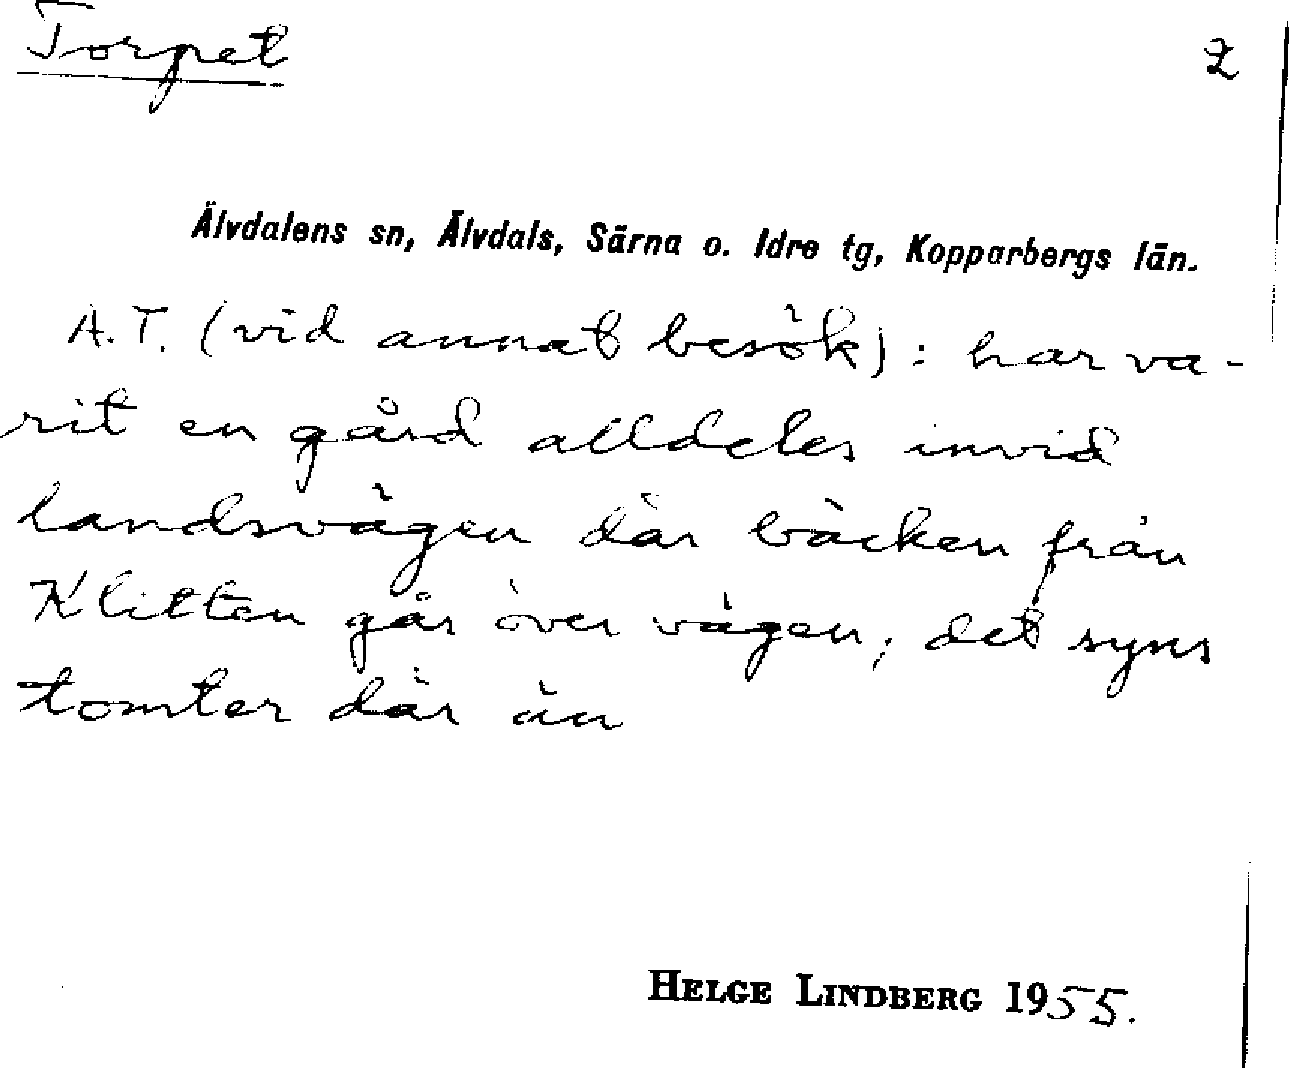 Torpet
2
Älvdalens sn, Älvdals, Särna o. Idre tg, Kopparbergs län.
A.T. (vid annat besök): har va-
rit en gård alldeles invid
landsvägen där bäcken från
Klitten går över vägen; det syns
tomter där än
HELGE LINDBERG 1955.